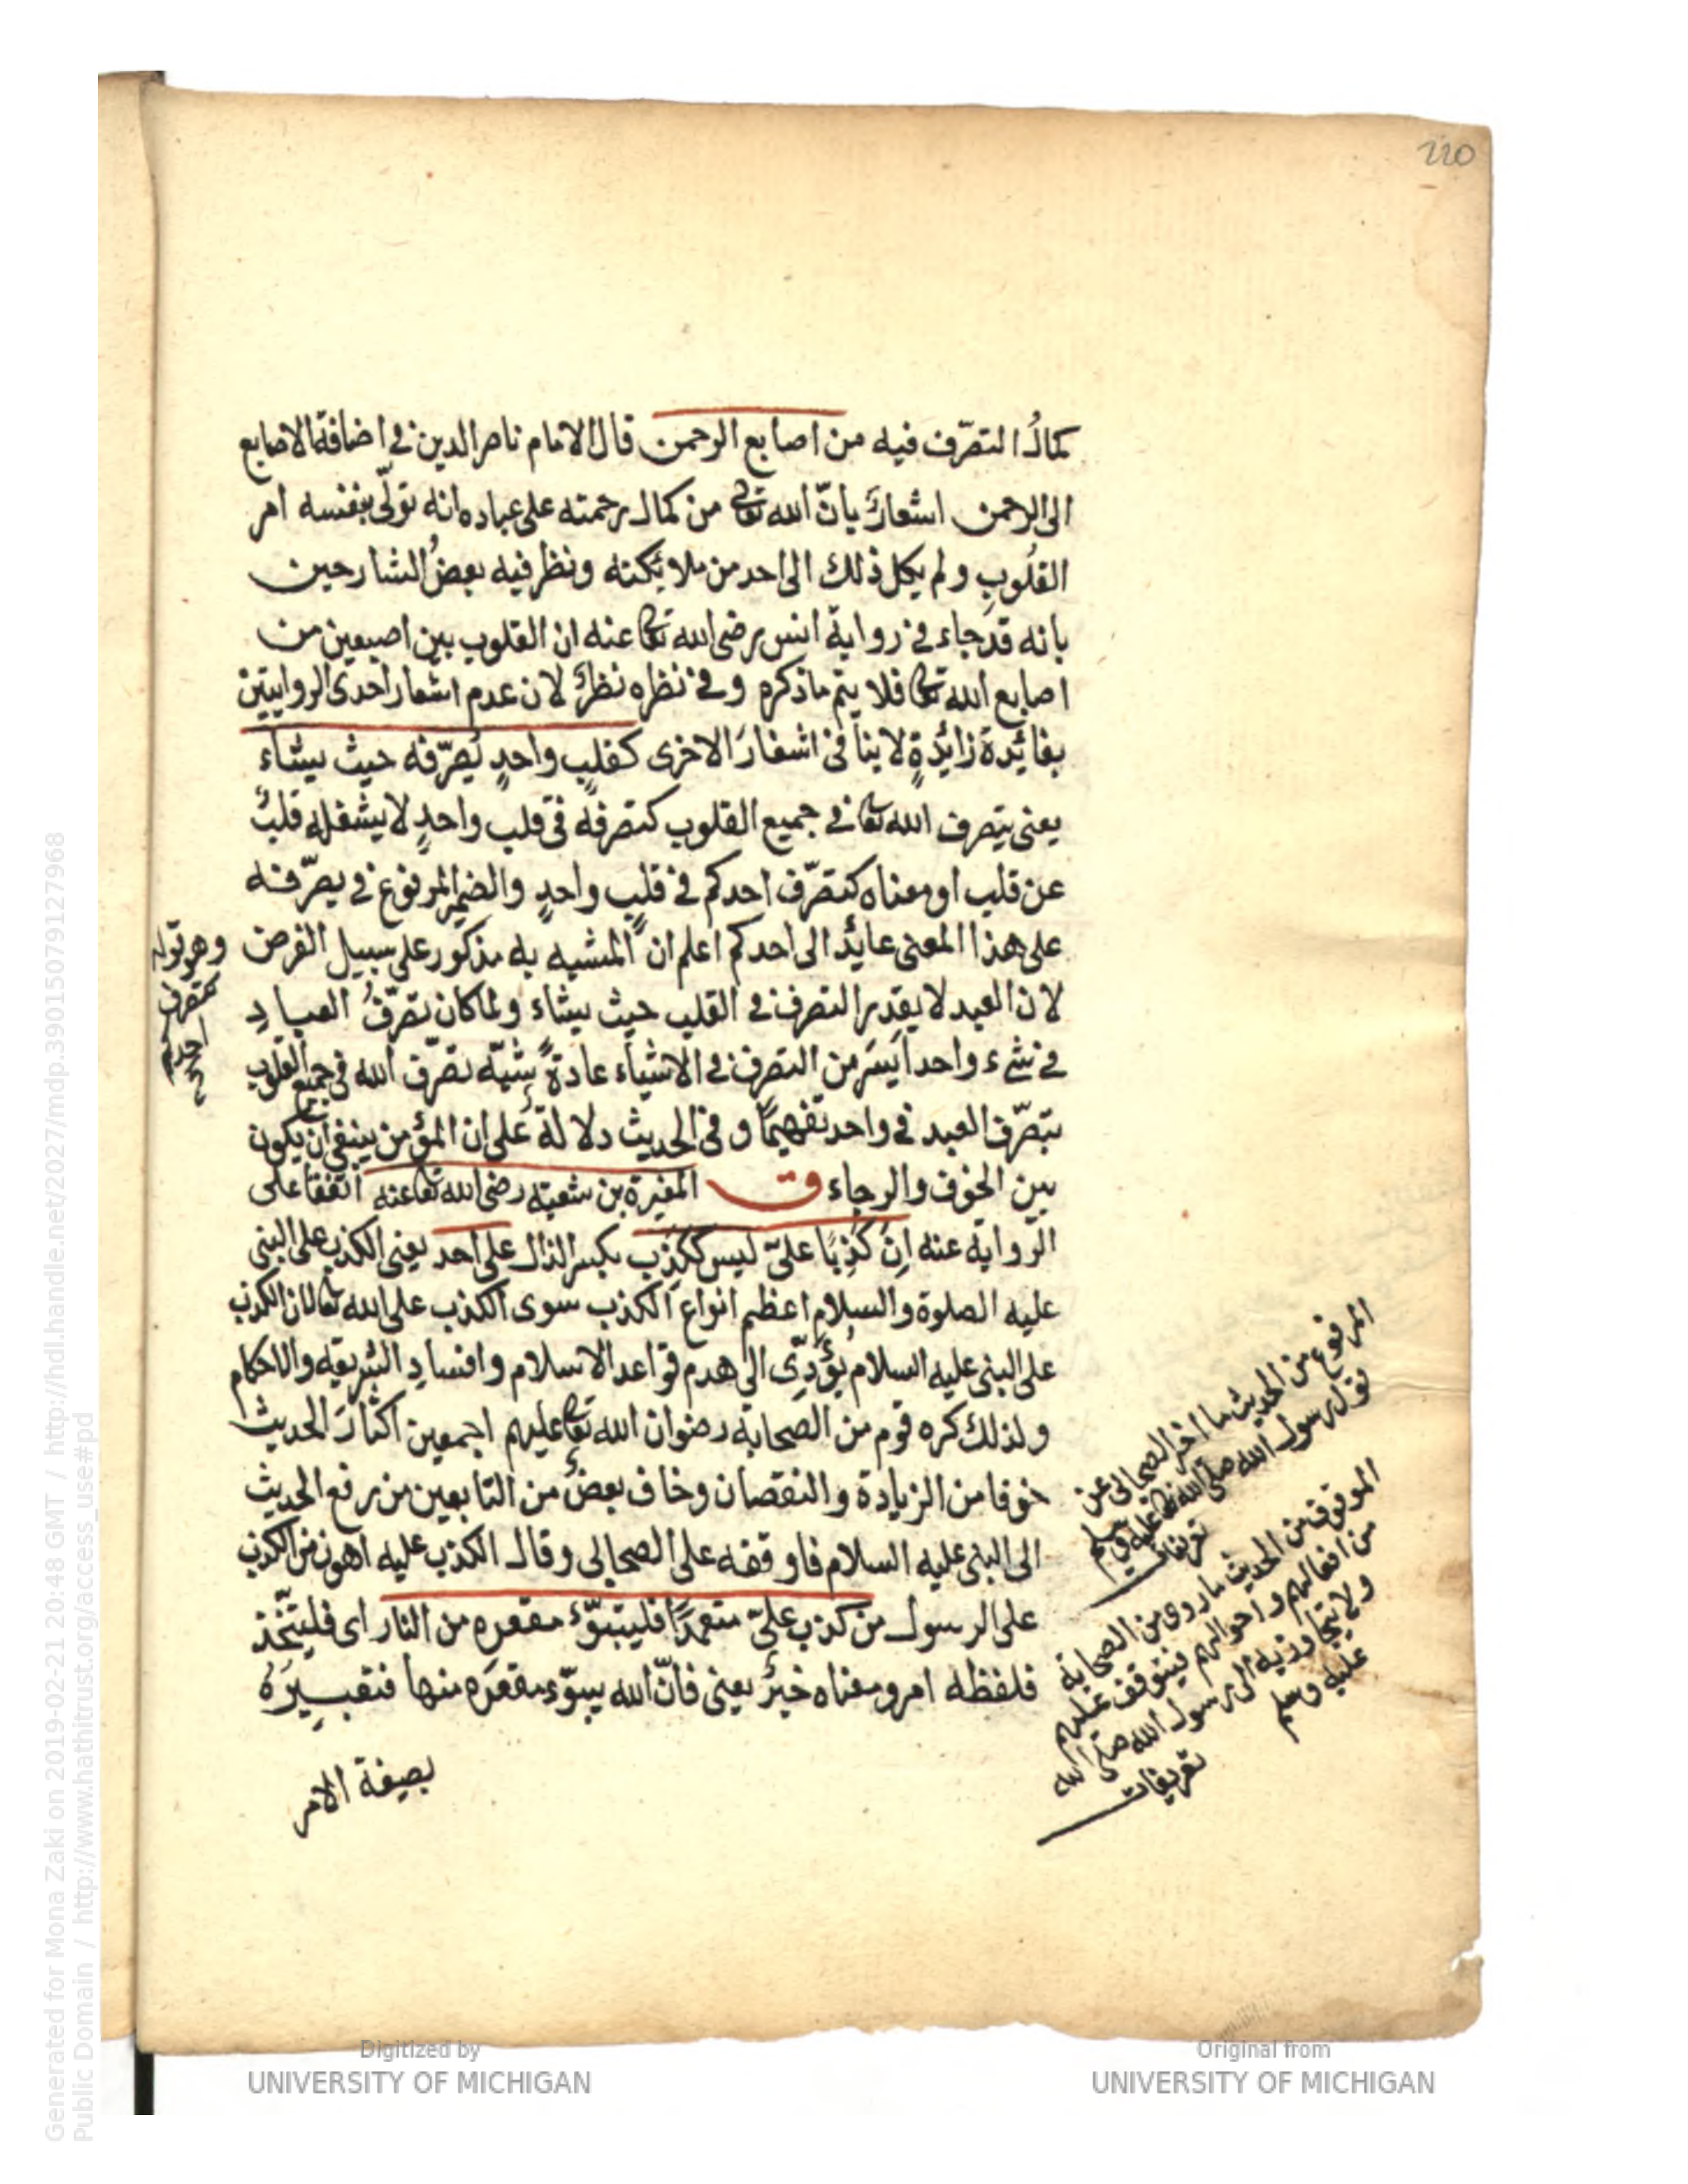 220
كمالُ التصرّف فيه من اصابع الرحمن قال الامام ناصر الدين في اضافة الاصابع
الى الرحمن اشعارٌ بانّ الله تعالى من كمال رحمته على عباده انه تولّى بنفسه امر
القلُوبِ ولم يكل ذلك الى احد من ملائكته ونظر فيه بعضُ الشارحين
بانه قد جاء في رواية انس رضى الله تعالى عنه ان القلوب بين اصبعين من
اصابع الله تعالى فلا يتم ماذكره وفي نظره نظرٌ لان عدم اشعار احدى الروايتين
بفائدة زائدةٍ لاينافى اشعارَ الاخرى كقلبٍ واحدٍ يُصرّفه حيث يشاء
يعنى يتصرف الله تعالى في جميع القلوب كتصرفه في قلب واحدٍ لا يشغله قلبٌ
عن قلب او معناه كتصرّف احدكم في قلبٍ واحدٍ والضمير المرفوع في يصرّفه
على هذا المعنى عايدٌ الى احدكم اعلم ان المشبه به مذكور على سبيل الفرض
وهو قوله
كتصرف
احدكم
لان العبد لا يقدر التصرف في القلب حيث يشاء ولما كان تصرّفُ العبادِ
في شىء واحد ايسَر من التصرف في الاشياء عادةً شبّه تصرّف الله في جميع القلوب
بتصرّف العبد في واحد تفهيمًا وفي الحديث دلالة على ان المؤمن ينبغى ان يكون
بين الخوف والرجاء ق المغيرة بن شعبة رضى الله تعالى عنه اتفقا على
الرّواية عنه اِنّ كَذِبًا علىّ ليس ككَذِب بكسر الذال على احد يعنى الكذب على النبى
عليه الصلوة والسلام اعظم انواع الكذب سوى الكذب على الله تعالى لان الكذب
على النبى عليه السلام يُؤدِّى الى هدم قواعد الاسلام وافسادِ الشريعة والاحكام
ولذلك كره قوم من الصحابة رضوان الله تعالى عليهم اجمعين اكثارَ الحديث
خوفا من الزيادة والنقصان وخاف بعضٌ من التابعين من رفع الحديث
الى النبى عليه السلام فاوقفه على الصحابى وقال الكذب عليه اهون من الكذب
على الرسول من كذب علىّ متعمّدًا فليتبوّء مقعده من النار اى فليتّخذ
فلفظه امر ومعناه خبرٌ يعنى فانّ الله يبوّء مقعدَه منها فتعبيرُهُ
بصيغة الامر
المرفوع من الحديث ما اخبر الصحابى عن
قول رسول الله صلى الله تعالى عليه وسلم
تعريفات
الموقوف من الحديث ما روى من الصحابة
من افعالهم واحوالهم فيتوقف عليهم
ولا يتجاوز به الى رسول الله صلى الله
عليه وسلم
تعريفات
Generated for Mona Zaki on 2019-02-21 20:48 GMT / http://hdl.handle.net/2027/mdp.39015079127968
Public Domain / http://www.hathitrust.org/access_use#pd
Digitized by
UNIVERSITY OF MICHIGAN
Original from
UNIVERSITY OF MICHIGAN